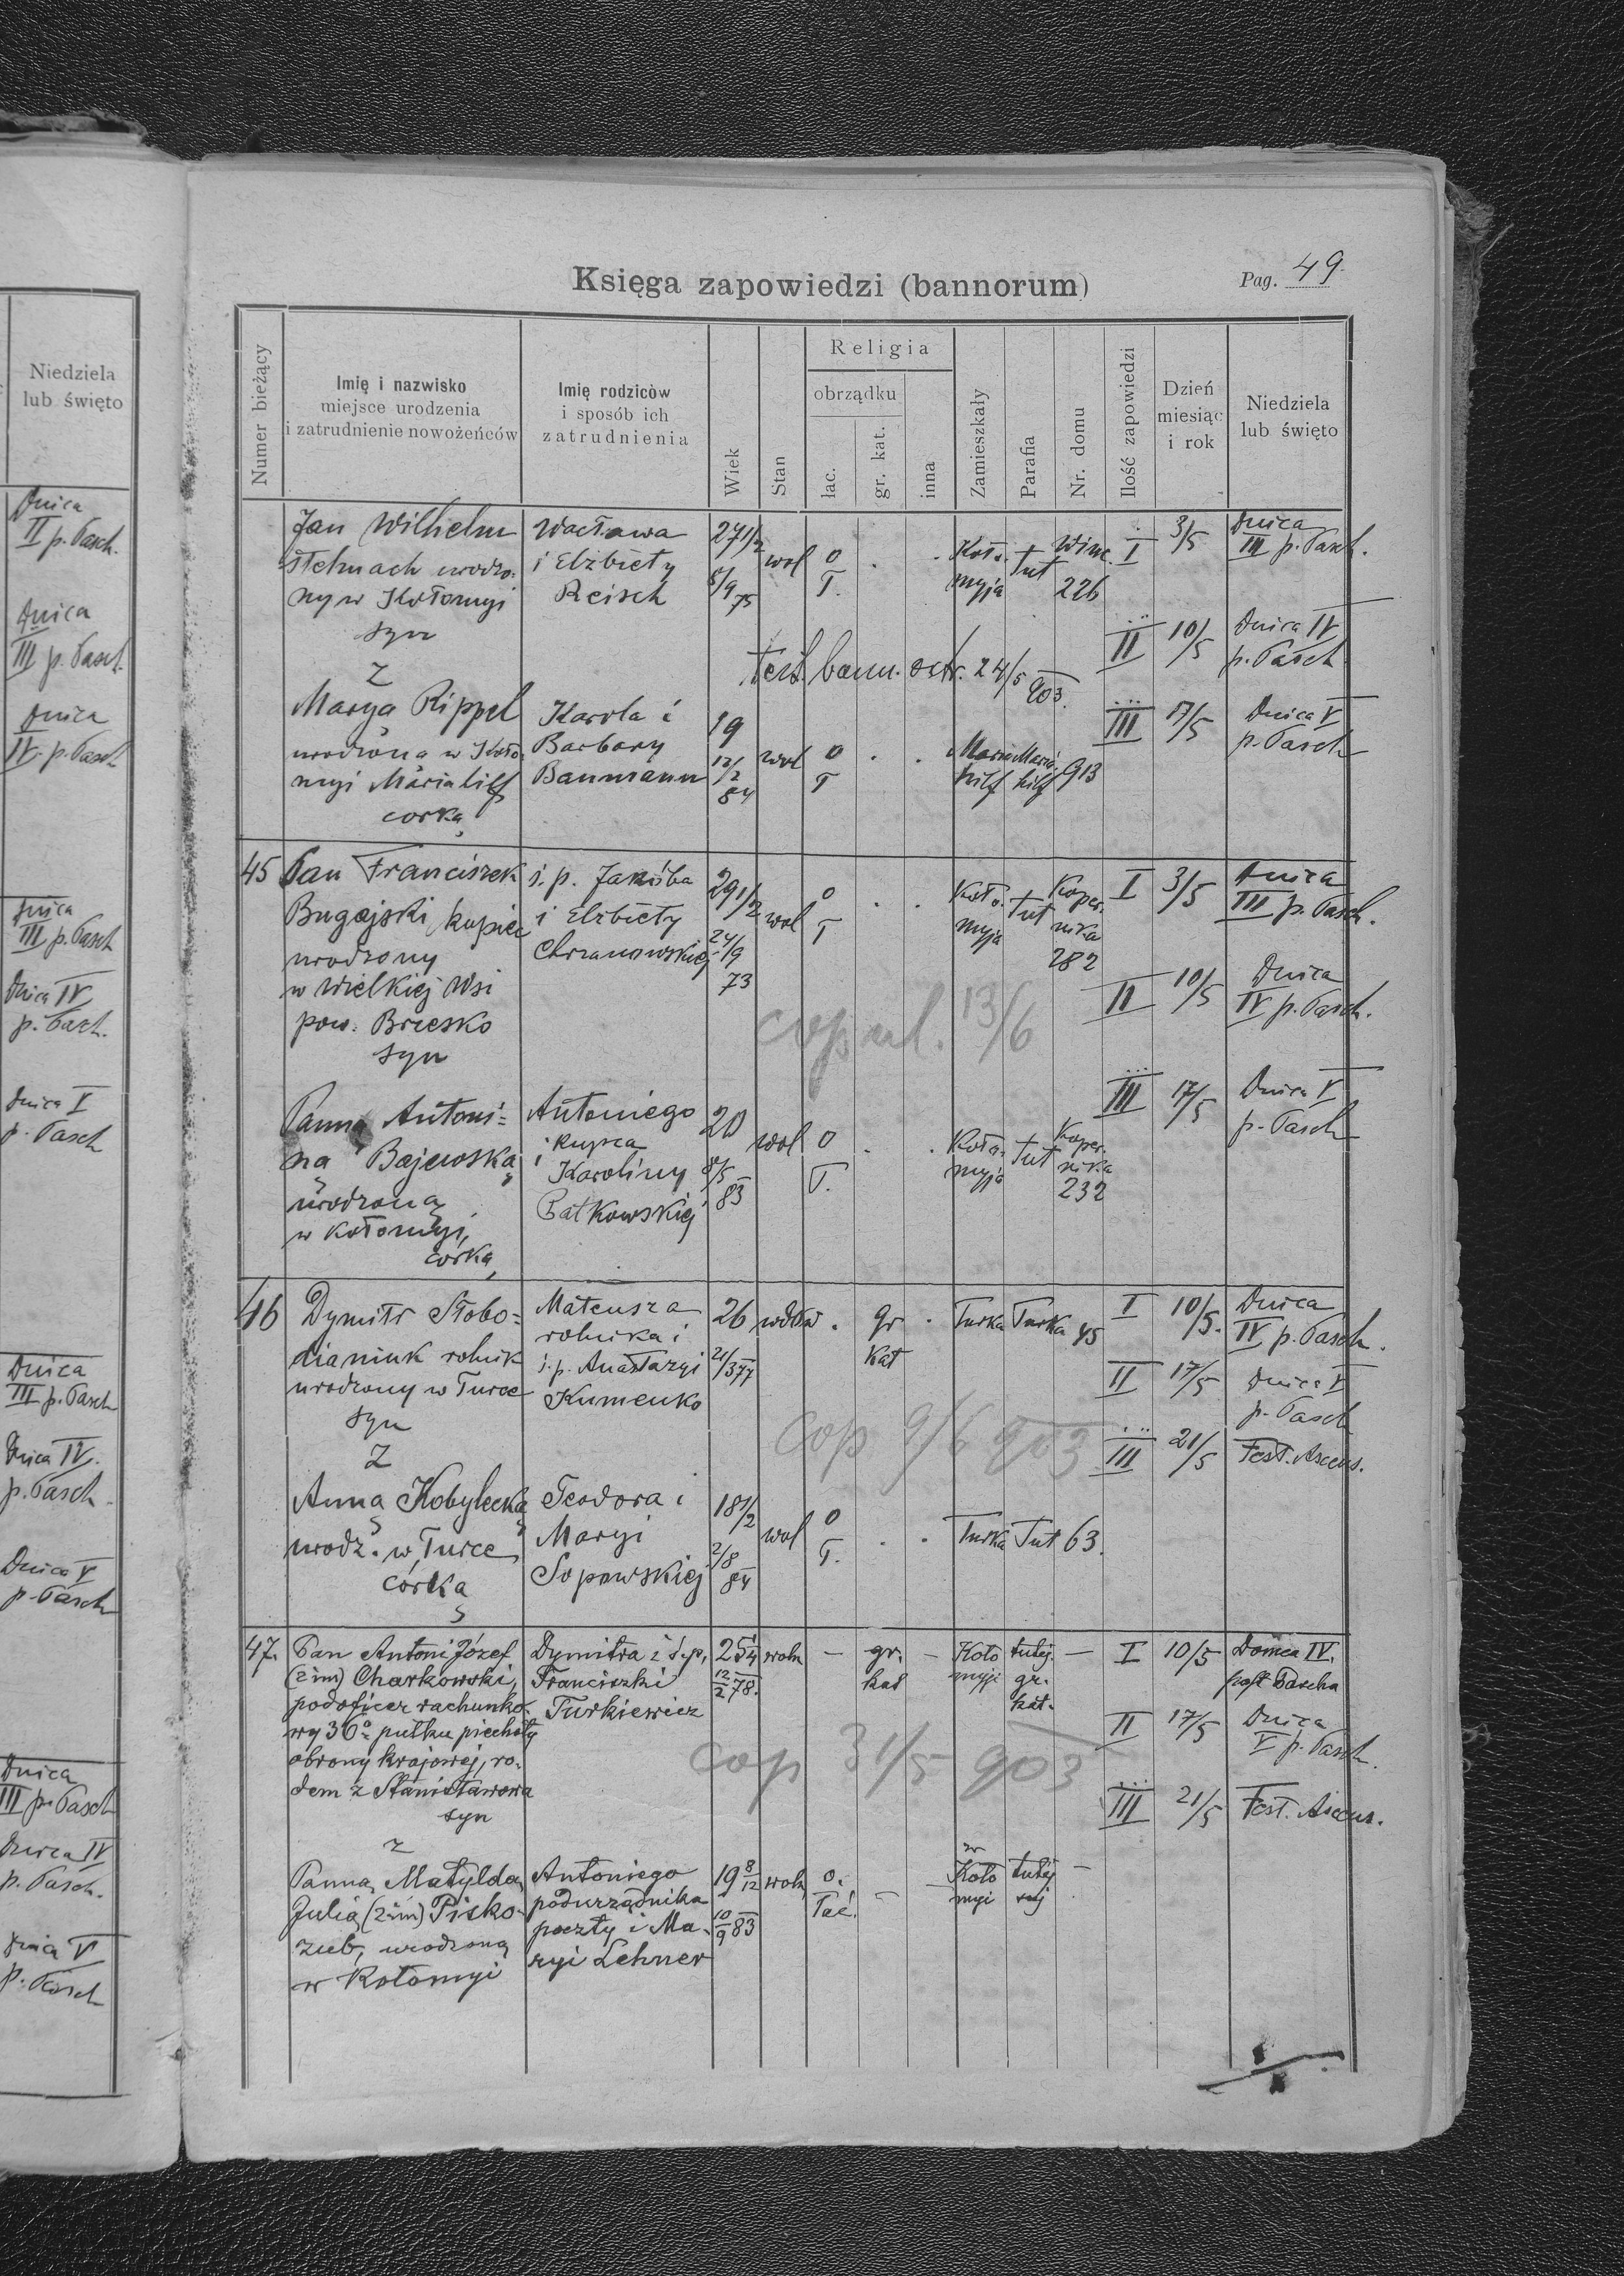 Niedziela
lub święto
Dnica
II p. Pasch.
Dnica
III p. Pasch.
Dnica
IV. p. Pasch
Dnica
III p. Pasch
Dnica IV
p. Pasch.
Dnica V
p. Pasch
Dnica
III p. Pasch
Dnica IV.
p. Pasch.
Dnica V
p. Pasch
Dnica
III p. Pasch
Dnica IV
p. Pasch.
Dnica V
p. Pasch
Księga zapowiedzi (bannorum)
Pag. 49
Numer bieżący
Imię i nazwisko
miejsce urodzenia
i zatrudnienie nowożeńców
Imię rodziców
i sposób ich
zatrudnienia
Wiek
Stan
Religia
obrządku
łac.
gr. kat.
inna
Zamieszkały
Parafia
Nr. domu
Ilość zapowiedzi
Dzień
miesiąc
i rok
Niedziela
lub święto
Jan Wilhelm
Stehnach urodzo-
ny w Kołomyi
syn
z
Wacława
i Elżbiety
Reisch
27 1/2
8/9 75
wol
o
T.
Koło
myja
tut
Winc.
226
I 3/5 Dnica
III p. Pasch.
II 10/5 Dnica IV
p. Pasch
test. bann. extr. 24/5 903.
III 17/5 Dnica V
p. Pasch
Marya Rippel
urodzona w Koło
myi Mariahilf
corką
Karola i
Barbary
Baumann
19
12/2
84
wol
o
T
Maria
hilf
Maria
hilf
913
45 Pan Franciszek
Bugajski kupiec
urodzony
w Wielkiej Wsi
pow. Brzesko
syn
ś. p. Jakóba
i Elżbiety
Chrzanowskiej
29 1/2
24/9
73
wol
o
T
Koło.
myja
tut
Koper.
nika
282
I 3/5 Dnica
III p. Pasch.
II 10/5 Dnica
IV p. Pasch.
copul. 13/6
III 17/5 Dnica V
p. Pasch
Panną Antoni=
ną Bajewską
urodzoną
w Kołomyi,
córką,
Antoniego
i kupca
Karoliny
Patkowskiej
20
8/5
83
wol
o
T.
Koło.
myja
tut
Koper.
nika
232
46 Dymitr Słobo=
dianiuk rolnik
urodzony w Turce
syn
z
Mateusza
rolnika i
ś. p. Anastazyi
Kumenko
26
21/3 77
wdów
gr
kat
Turka Turka 45
I 10/5. Dnica
IV p. Pasch.
II 17/5 Dnica V
p. Pasch
cop 9/6 903
III 21/5 Fest. Ascens.
Anną Kobylecką
urodz. w Turce
córką
Teodora i
Maryi
Sopowskiej
18 1/2
2/8
84
wol
o
T.
Turka Tut 63.
47. Pan Antoni Józef
(2 im) Charkowski,
podoficer rachunko-
wy 36º pułku piechoty
obrony krajowej, ro-
dem z Stanisławowa
syn
z
Dymitra i ś.p.
Franciszki
Turkiewicz
25 1/4
12/2 78.
woln
—
gr.
kat
—
Koło
myji
tutej.
gr.
kat.
—
I 10/5 Domca IV.
post Pascha
II 17/5 Dnica
V p. Pasch.
cop 31/5 903
III 21/5 Fest. Ascens.
Panną Matyldą
Julią (2 im) Pisko-
zub, urodzoną
w Kołomyi
Antoniego
podurzędnika
poczty i Ma-
ryi Lehner
19 8/12
10/9 83
woln
o.
łac.
—
w
Koło
myi
tutej
szej
—